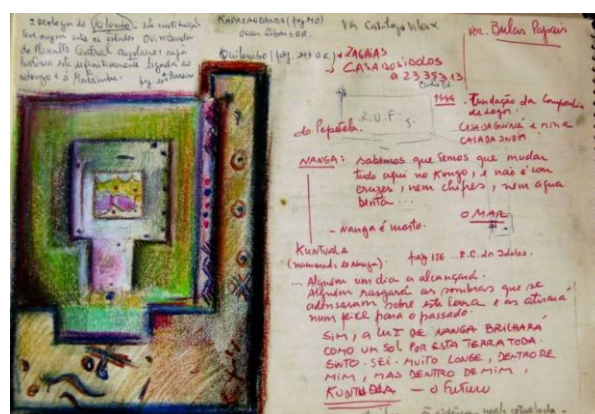 Ideologia do Kilombo
tem origem entre os estados OVIMBUNDU
do Planalto Central angolano; cuja
história está definitivamente ligada ao
Ndongo e à Matamba.
KAPALANDANDA (pag 110)
Quilombo (pag 343 O.R.)
→ ZAGAIAS
→ CASA DOS ÍDOLOS
Vh Catálogo Vileix
ver. Bulas Papais
1444 - Fundação da Companhia
de Lagos.
CASA DA GUINÉ e MINA
CASA DA INDIA
R.U.F.S.
do Pepetela.
NANGA: sabemos que temos que mudar
tudo aqui no Kongo, e não é com
cruzes, nem chifres, nem água
benta...
O MAR
- Nanga é morto.
KUNTUALA
(namorada de Nanga). pag 136 ...
.... Alguém um dia a alcançará.
Alguém rasgará as sombras que se
adensaram sobre esta terra e as atirará
num feixe para o passado.
SIM, A LUZ DE NANGA BRILHARÁ
COMO UM SOL POR ESTA TERRA TODA.
SINTO. SEI. MUITO LONGE, DENTRO DE
MIM, MAS DENTRO DE MIM,
KUNTUALA — o futuro